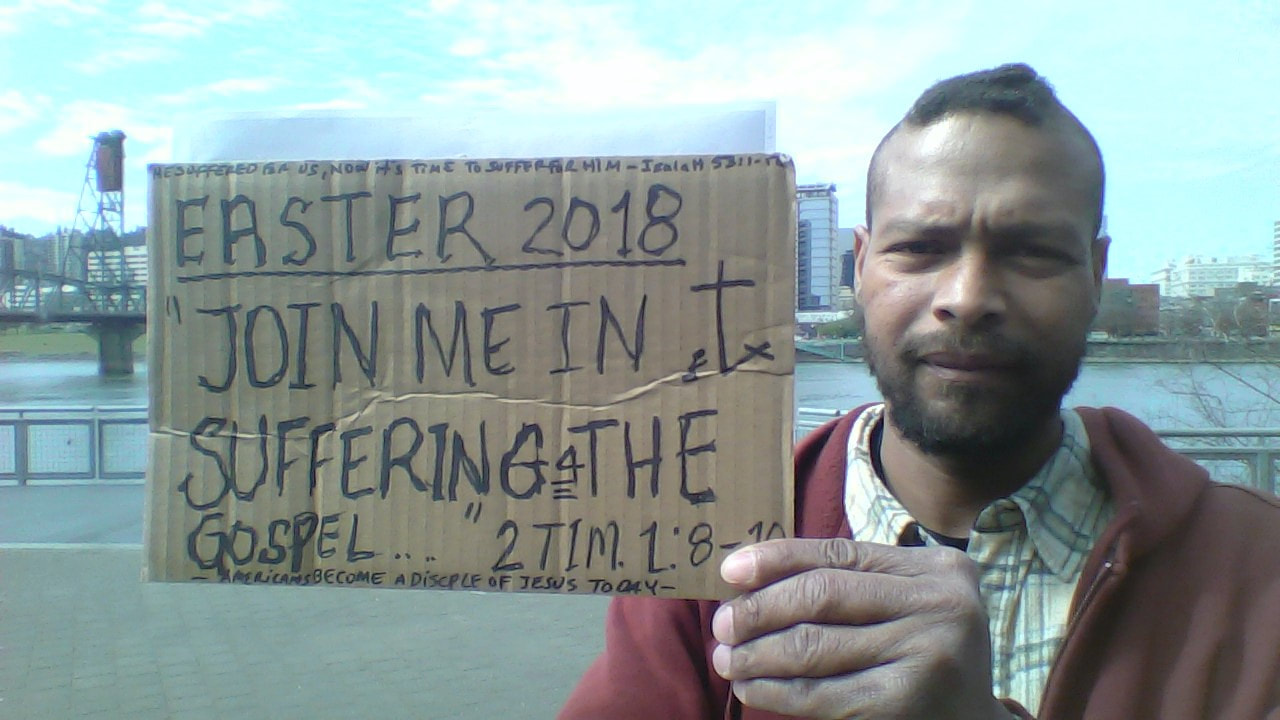 HE SUFFERED FOR US, NOW IT'S TIME TO SUFFER FOR HIM - Isaiah 53:1-12
EASTER 2018
"JOIN ME IN
SUFFERING 4 THE
GOSPEL..." 2 TIM. 1:8-10
- AMERICANS BECOME A DISCPLE OF JESUS TODAY -